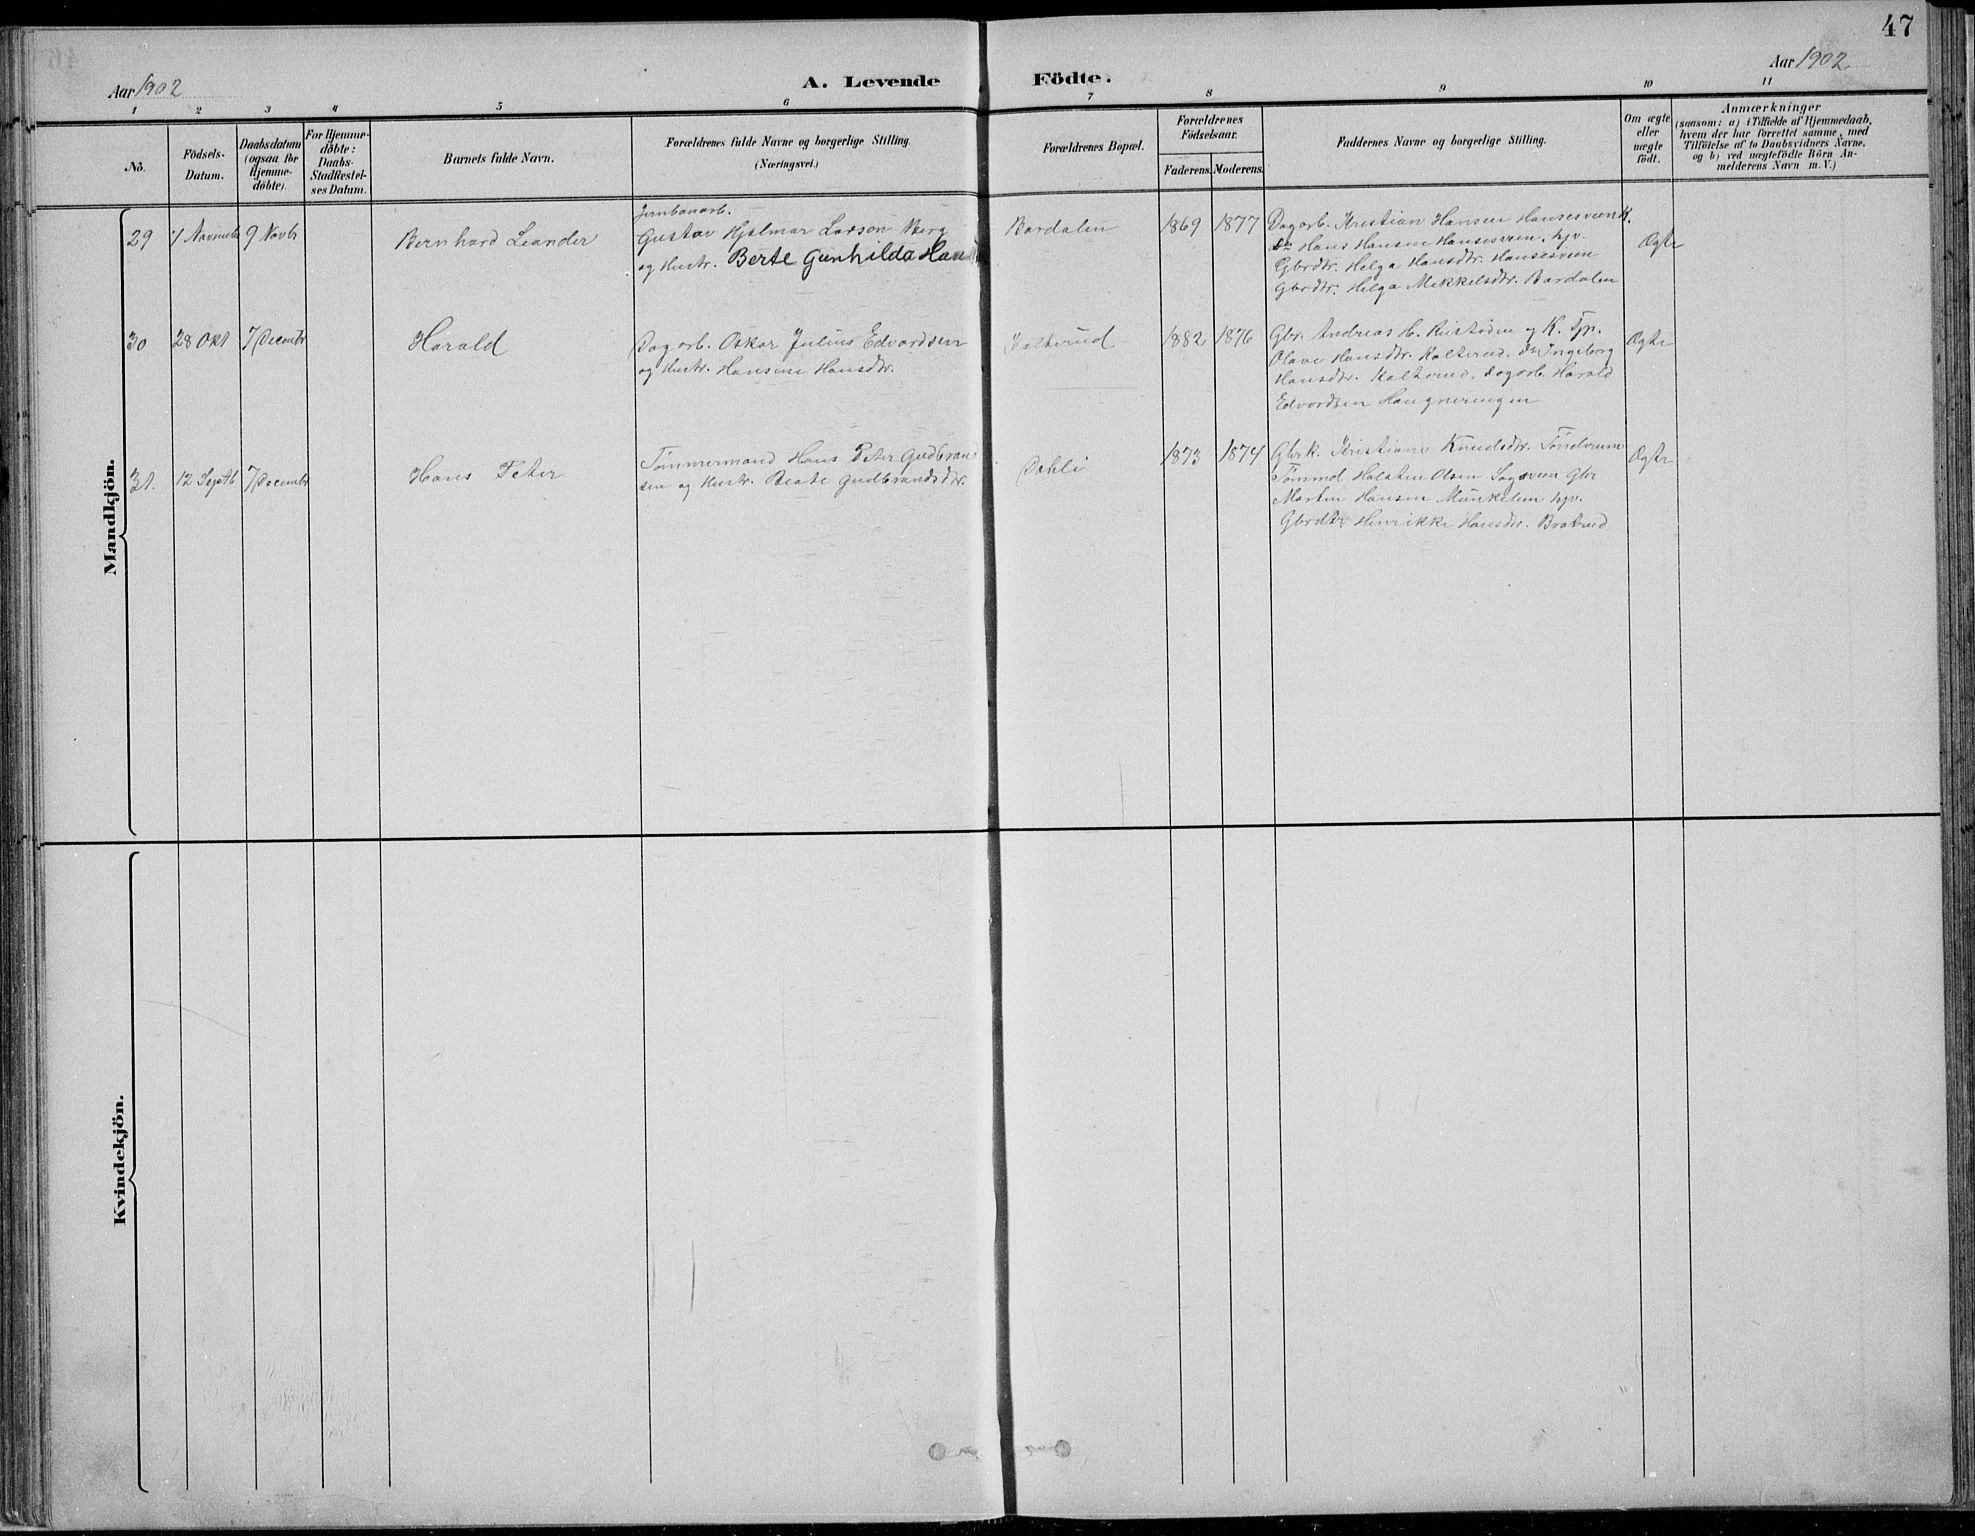 47
Aar 1902
A. Levende Födte.
Aar 1902
1 2 3 4 5 6 7 8 9 10 11
No.
Födsels-
Datum.
Daabsdatum
(ogsaa for
Hjemme-
döbte).
For Hjemme-
döbte:
Daabs-
Stadfæstel-
ses Datum.
Barnets fulde Navn.
Forældrenes fulde Navne og borgerlige Stilling.
(Næringsvei.)
Forældrenes Bopæl.
Forældrenes
Födselsaar.
Faderens. Moderens.
Faddernes Navne og borgerlige Stilling.
Om ægte
eller
uægte
født.
Anmærkninger
(saasom: a) i Tilfælde af Hjemmedaab,
hvem der har forrettet samme, med
Tilföielse af to Daabsvidners Navne,
og b) ved uægtefödte Börn An-
melderens Navn m. V.)
Mandkjön.
29
9 Novbr
Bernhard Leander
Jernbanarb.
Gustav Hjalmar Larson Berg
og Hustr. Berte Gunhilda
Bardalen
1869 1877
Dagarb. Kristian Hansen Hansesveen K.
do Hans Hansen Hansesveen, hjv.
Gbrdtr. Helga Hansdtr. Hansesveen
Gbrdtr. Helga Mikkelsdtr. Bardalen
Ægte
30
28 Okt
7 Decembr
Harald
Dagarb. Oskar Julius Edvardsen
og Hustr. Hansine Hansdtr.
Kalterud
1882 1876
Gbr. Andreas H. og K. Tjp.
Olave Hansdtr. Kalterud, do Ingeborg
Hansdtr. Kalterud, dagarb. Harald
Edvardsen Haugneringen
Ægte
31.
12 Septb
7 Decembr
Hans Peter
Tömmermand Hans Peter Gudbrand
sen og Hustr. Beate Gudbrandsdtr.
Dahli
1873 1874
Gbrk. Kristiane Knudsdtr. Tönderum
Tømmd Halsten Olsen Sagsveen Gbr
Morten Hansen Munkelien hjv.
Gbrdtr Henrikke Hansdtr. Bratrud
Ægte
Kvindekjön.